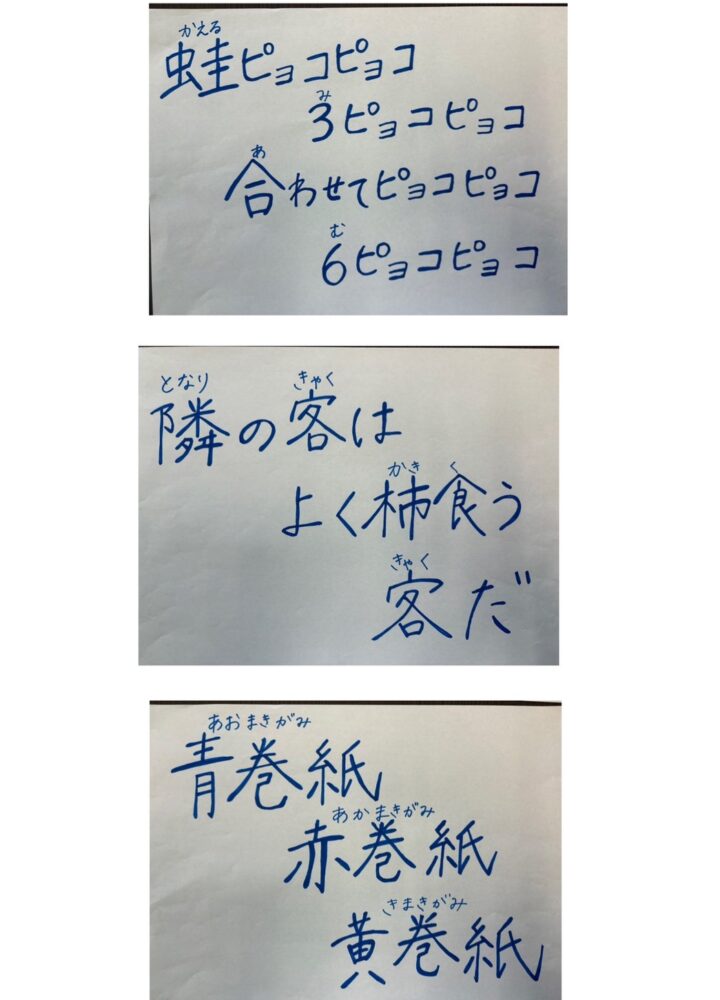 かえる
蛙ピョコピョコ
み
3ピョコピョコ
あ
合わせてピョコピョコ
む
6ピョコピョコ
となり きゃく
隣の客は
かき く
よく柿食う
きゃく
客だ
あおまきがみ
青巻紙
あかまきがみ
赤巻紙
きまきがみ
黄巻紙